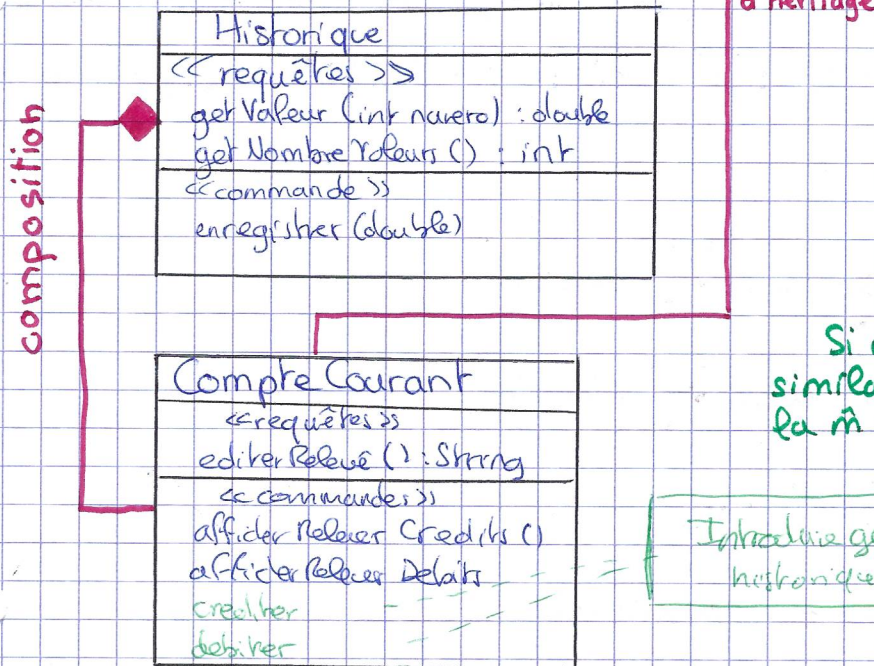 d'héritage
Historique
<< requêtes >>
getValeur (int numero) : double
getNombreValeurs () : int
<<commande>>
enregistrer (double)
composition
CompteCourant
<<requêtes>>
editerRelevé () : String
<<commandes>>
afficherReleverCredits ()
afficherReleverDebits
crediter
debiter
Si
la m̂
Introduire
historique